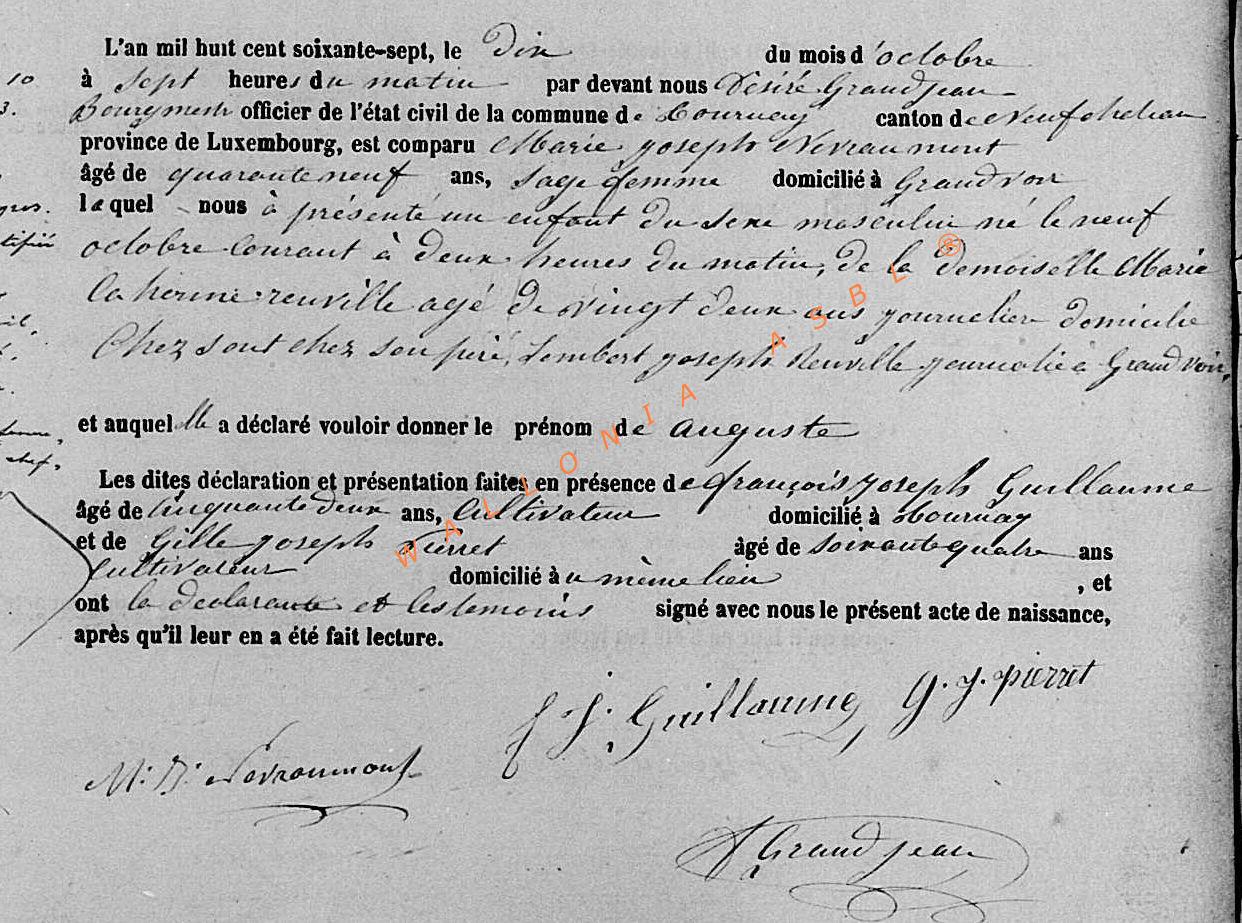 L'an mil huit cent soixante-sept, le dix du mois d'octobre
10 à sept heures du matin par devant nous Désiré Grandjean
3. Bourgmestre officier de l'état civil de la commune de Tournay canton de Neufchateau
province de Luxembourg, est comparu Marie Joseph Nevraumont
âgé de quarante neuf ans, sage femme domicilié à Grandvoir
laquel nous à présenté un enfant du sexe masculin né le neuf
octobre courant à deux heures du matin, de la demoiselle Marie
Catherine Neuville agé de vingt deux ans journelière domicilié
chez sont chez son père, Lambert Joseph Neuville journalié à Grandvoir,
et auquel elle a déclaré vouloir donner le prénom de auguste
Les dites déclaration et présentation faites en présence de françois joseph Guillaume
âgé de cinquante deux ans, Cultivateur domicilié à tournay
et de Gille joseph Pierret âgé de soixante quatre ans
Cultivateur domicilié à u même lieu , et
ont la declarante et les temoins signé avec nous le présent acte de naissance,
après qu'il leur en a été fait lecture.
f J. Guillaume G. J. pierret
M. J. Nevraumont
D. Grandjean
WALLONIA ASBL ®